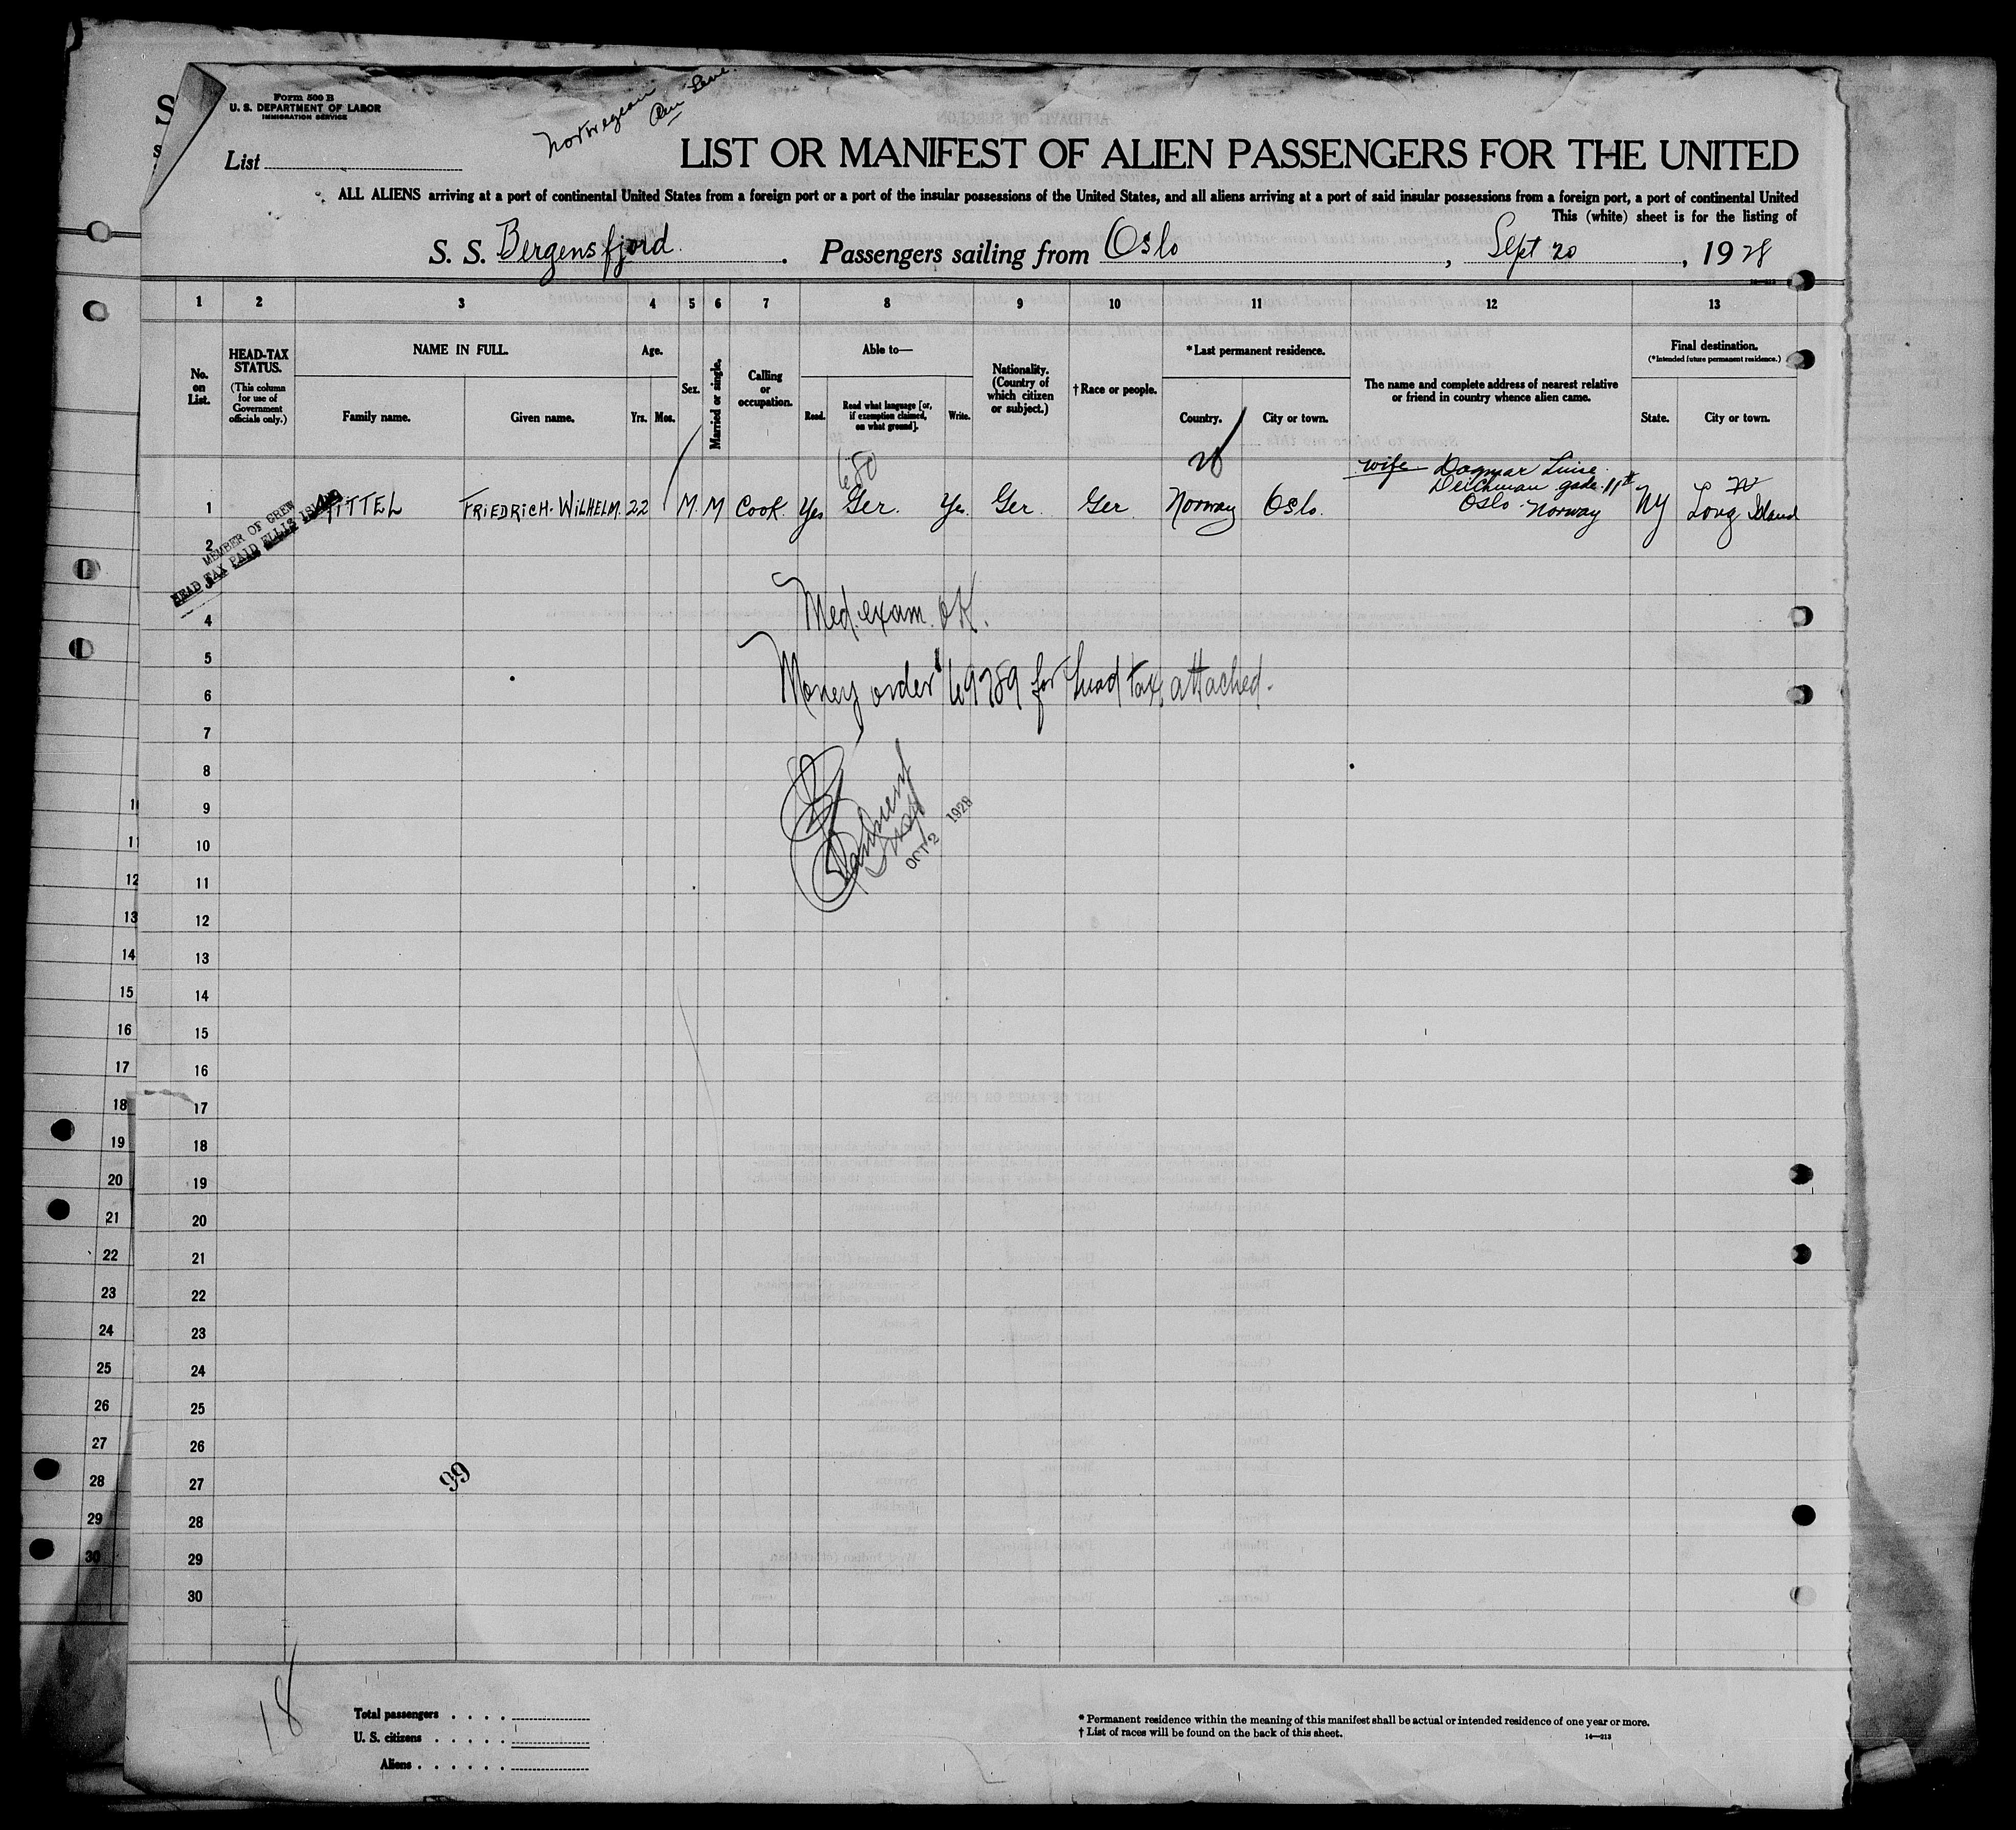 Form 500 B
U. S. DEPARTMENT OF LABOR
IMMIGRATION SERVICE
Norwegian
Am Line
List
LIST OR MANIFEST OF ALIEN PASSENGERS FOR THE UNITED
ALL ALIENS arriving at a port of continental United States from a foreign port or a port of the insular possessions of the United States, and all aliens arriving at a port of said insular possessions from a foreign port, a port of continental United
This (white) sheet is for the listing of
S. S. Bergensfjord. Passengers sailing from Oslo, Sept 20, 1928
1 2 3 4 5 6 7 8 9 10 11 12 13
No. on List.
HEAD-TAX STATUS.
(This column for use of Government officials only.)
NAME IN FULL.
Family name. Given name.
Age.
Yrs. Mos.
Sex.
Married or single.
Calling or occupation.
Able to—
Read. Read what language [or, if exemption claimed, on what ground]. Write.
Nationality. (Country of which citizen or subject.)
† Race or people.
*Last permanent residence.
Country. City or town.
The name and complete address of nearest relative or friend in country whence alien came.
Final destination.
(*Intended future permanent residence.)
State. City or town.
680
wife Dagmar Luise
Deichman gade 11
Oslo Norway
1 TITTEL FRIEDRICH-WILHELM. 22 M. M Cook Yes Ger. Yes Ger. Ger Norway Oslo. NY Long Island
MEMBER OF CREW
HEAD TAX PAID ELLIS ISLAND
2
4
Med. exam. OK.
5
Money order 69789 for head tax attached.
6
7
8
9
10
OCT 2 1928
11
12
13
14
15
16
17
18
19
20
21
22
23
24
25
26
27
99
28
29
30
18
Total passengers
U. S. citizens
Aliens
* Permanent residence within the meaning of this manifest shall be actual or intended residence of one year or more.
† List of races will be found on the back of this sheet.
14—213
10
11
12
13
14
15
16
17
18
19
20
21
22
23
24
25
26
27
28
29
30